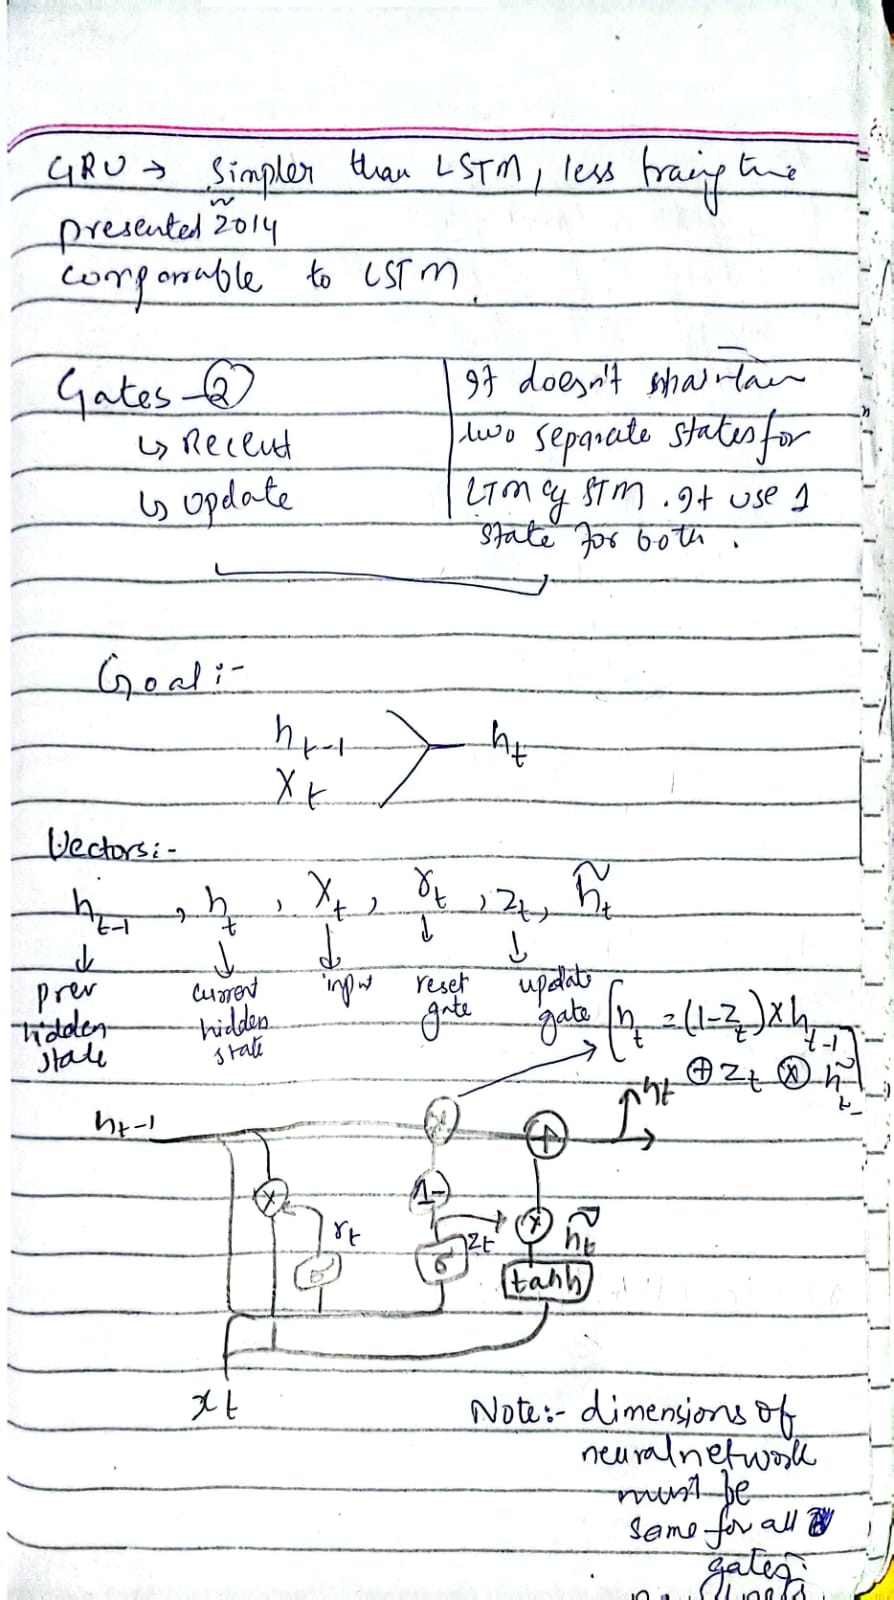 GRU → Simpler than LSTM, less traing time
presented 2014
comparable to LSTM.
Gates - 2
↳ Recent
↳ Update
It doesn't maintain
two separate states for
LTM & STM. It use 1
state for both.
Goal :-
h_{t-1}
X_t
h_t
Vectors :-
h_{t-1}, h_t, X_t, r_t, z_t, h̃_t
↓ ↓ ↓ ↓ ↓
prev hidden state
current hidden state
input
reset gate
update gate
h_t = (1-z_t) × h_{t-1}
⊕ z_t ⊗ h̃_t
h_{t-1}
h_t
×
+
×
1-
r_t
z_t
×
h̃_t
σ
σ
tanh
x_t
Note:- dimensions of
neural network
must be
same for all
gates.